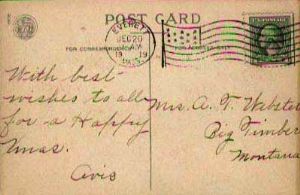 POST CARD
EVERETT
DEC 20
AM
19 19
WASH.
FOR CORRESPONDENCE
FOR ADDRESS ONLY
With best
wishes to all
for a Happy
Xmas.
Avis
Mrs. A. F. Webster
Big Timber
Montana